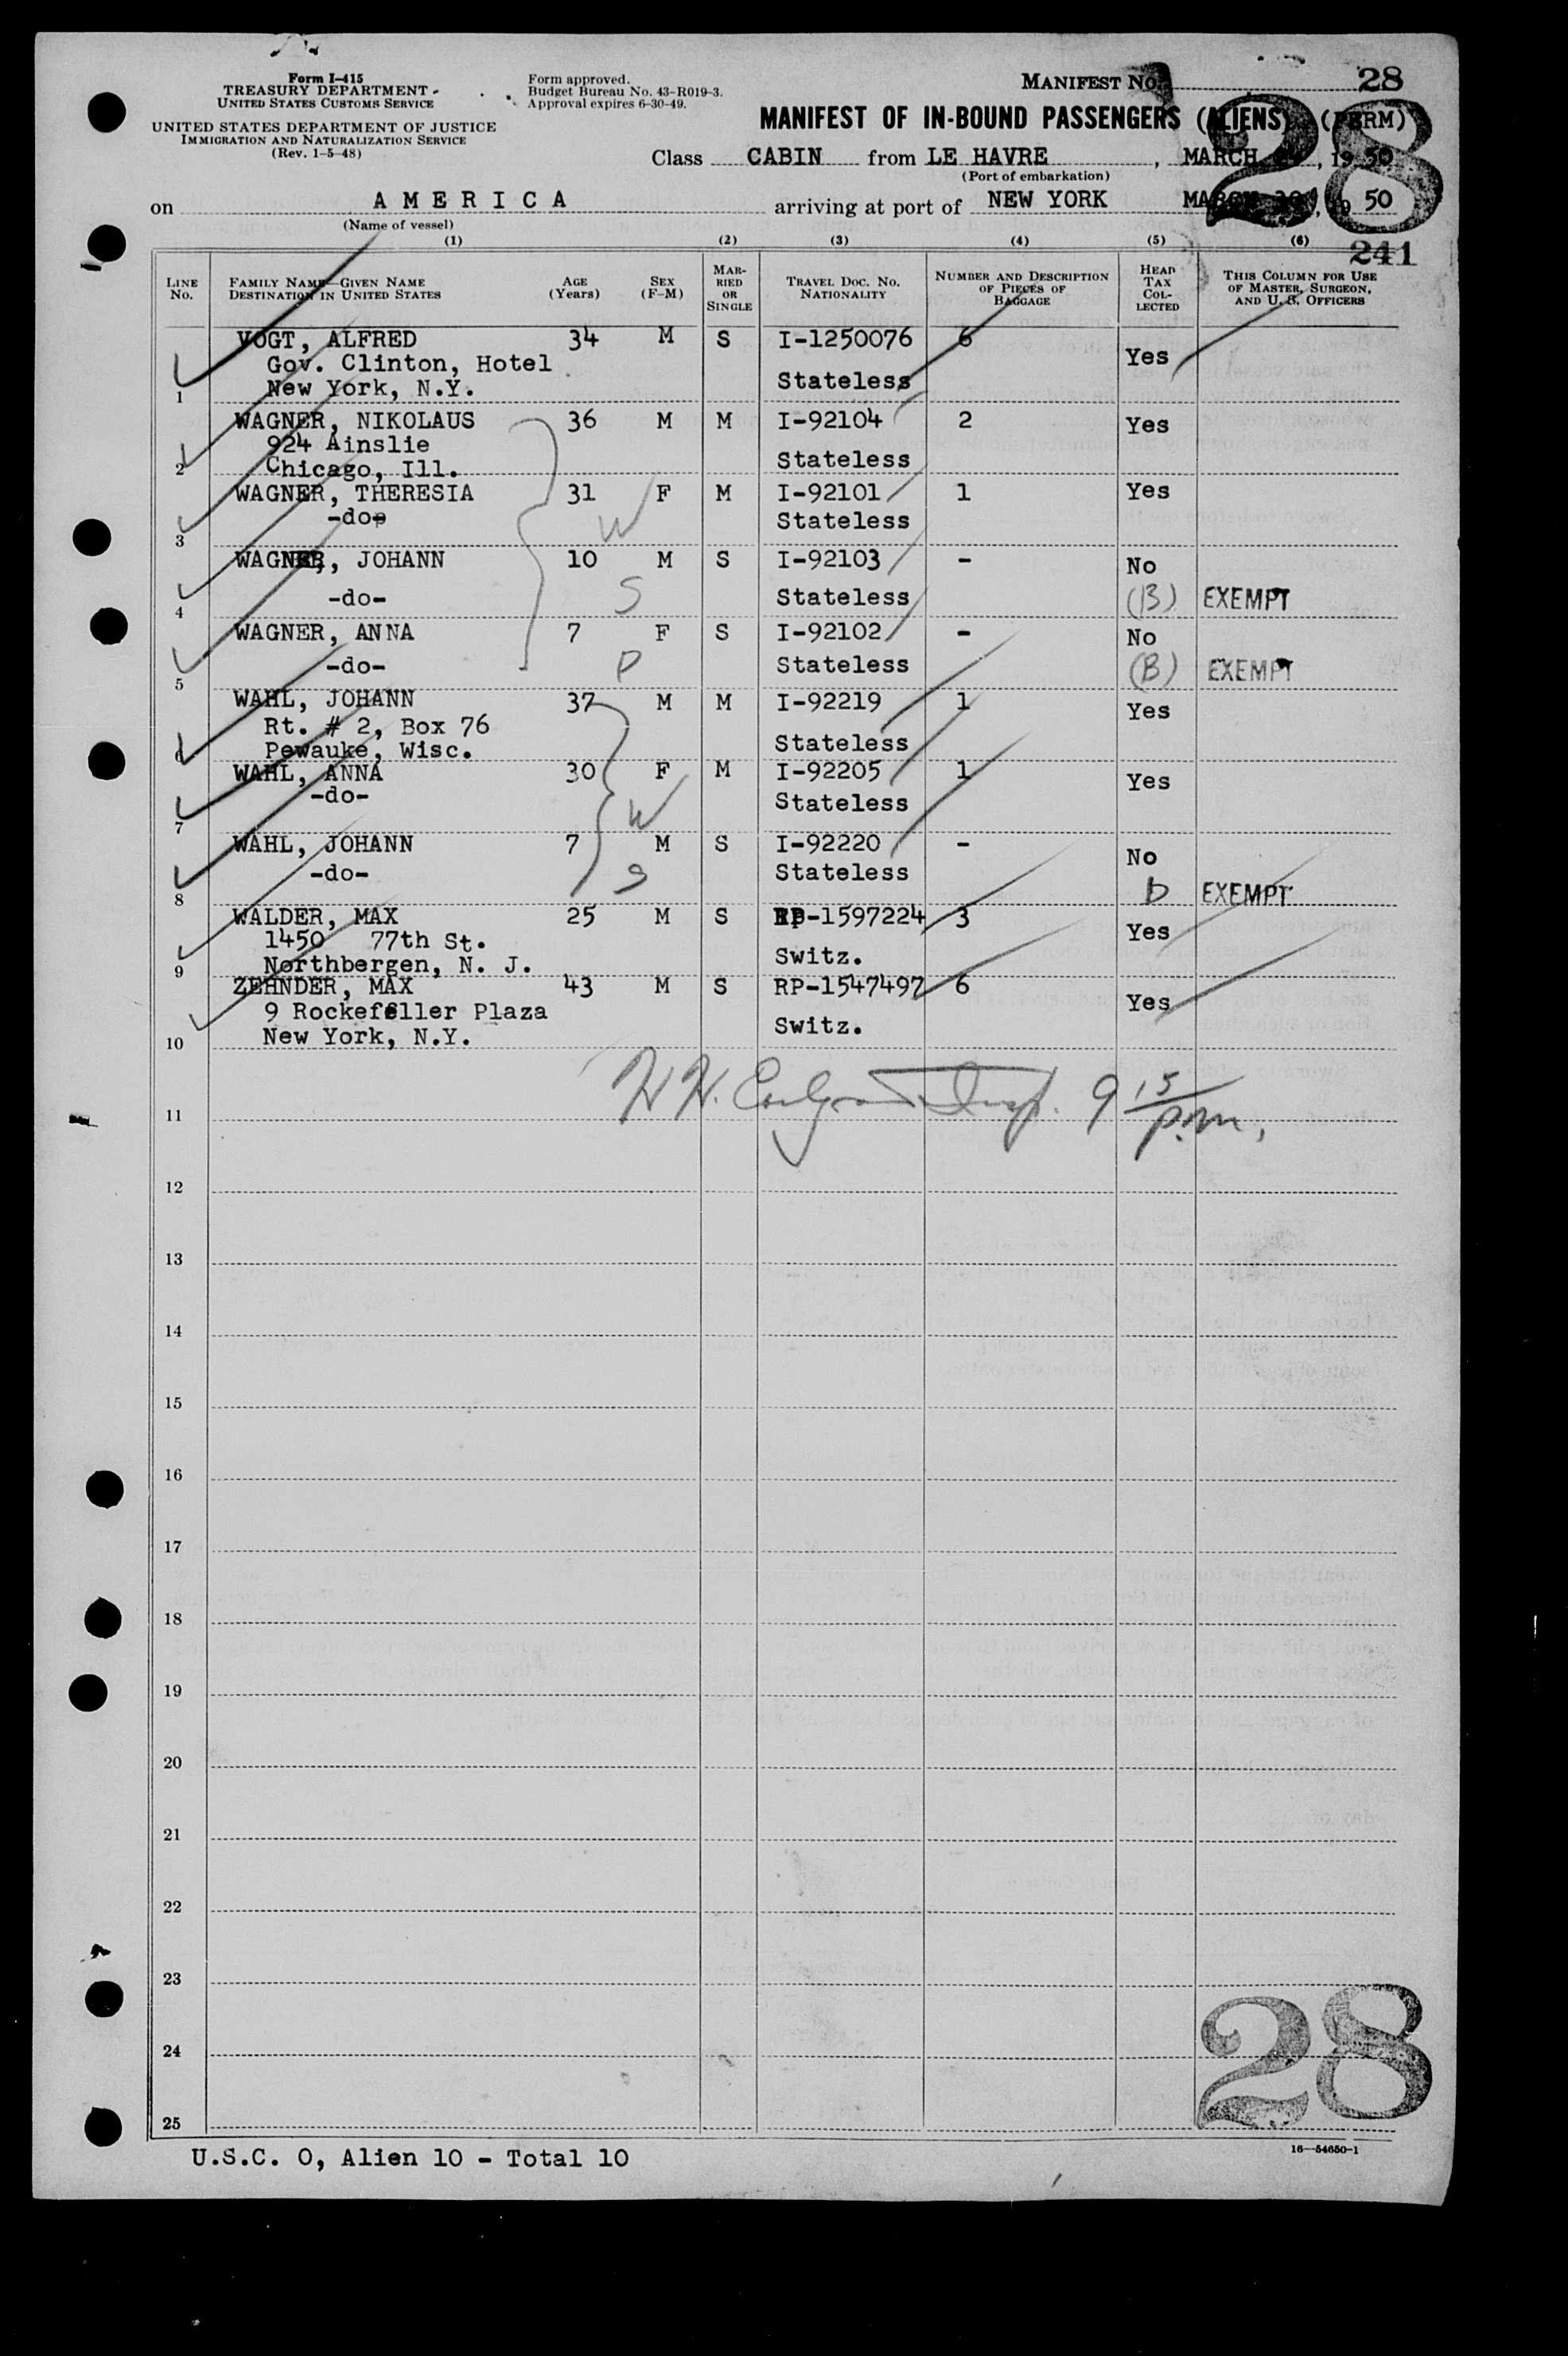 Form I-415
TREASURY DEPARTMENT
UNITED STATES CUSTOMS SERVICE
UNITED STATES DEPARTMENT OF JUSTICE
IMMIGRATION AND NATURALIZATION SERVICE
(Rev. 1-5-48)
Form approved.
Budget Bureau No. 43-R019-3.
Approval expires 6-30-49.
MANIFEST No. 28
28
MANIFEST OF IN-BOUND PASSENGERS (ALIENS) (PERM)
Class CABIN from LE HAVRE, MARCH, 1950
(Port of embarkation)
on AMERICA arriving at port of NEW YORK MARCH, 19 50
(Name of vessel)
241
(1) (2) (3) (4) (5) (6)
LINE No. FAMILY NAME—GIVEN NAME DESTINATION IN UNITED STATES AGE (Years) SEX (F-M) MARRIED OR SINGLE TRAVEL DOC. No. NATIONALITY NUMBER AND DESCRIPTION OF PIECES OF BAGGAGE HEAD TAX COLLECTED THIS COLUMN FOR USE OF MASTER, SURGEON, AND U. S. OFFICERS
VOGT, ALFRED 34 M S I-1250076 6 Yes
Gov. Clinton, Hotel Stateless
1 New York, N.Y.
WAGNER, NIKOLAUS 36 M M I-92104 2 Yes
924 Ainslie Stateless
2 Chicago, Ill.
WAGNER, THERESIA 31 F M I-92101 1 Yes
-do- W Stateless
3
WAGNER, JOHANN 10 M S I-92103 - No
-do- S Stateless (B) EXEMPT
4
WAGNER, ANNA 7 F S I-92102 - No
-do- D Stateless (B) EXEMPT
5
WAHL, JOHANN 37 M M I-92219 1 Yes
Rt. # 2, Box 76 Stateless
6 Pewauke, Wisc.
WAHL, ANNA 30 F M I-92205 1 Yes
-do- W Stateless
7
WAHL, JOHANN 7 M S I-92220 - No
-do- S Stateless
8 D EXEMPT
WALDER, MAX 25 M S RP-1597224 3 Yes
1450 77th St. Switz.
9 Northbergen, N. J.
ZEHNDER, MAX 43 M S RP-1547497 6 Yes
9 Rockefeller Plaza Switz.
10 New York, N.Y.
Insp. 9 15 p.m.
11
12
13
14
15
16
17
18
19
20
21
22
23
24
25
28
U.S.C. 0, Alien 10 - Total 10
16—54650-1